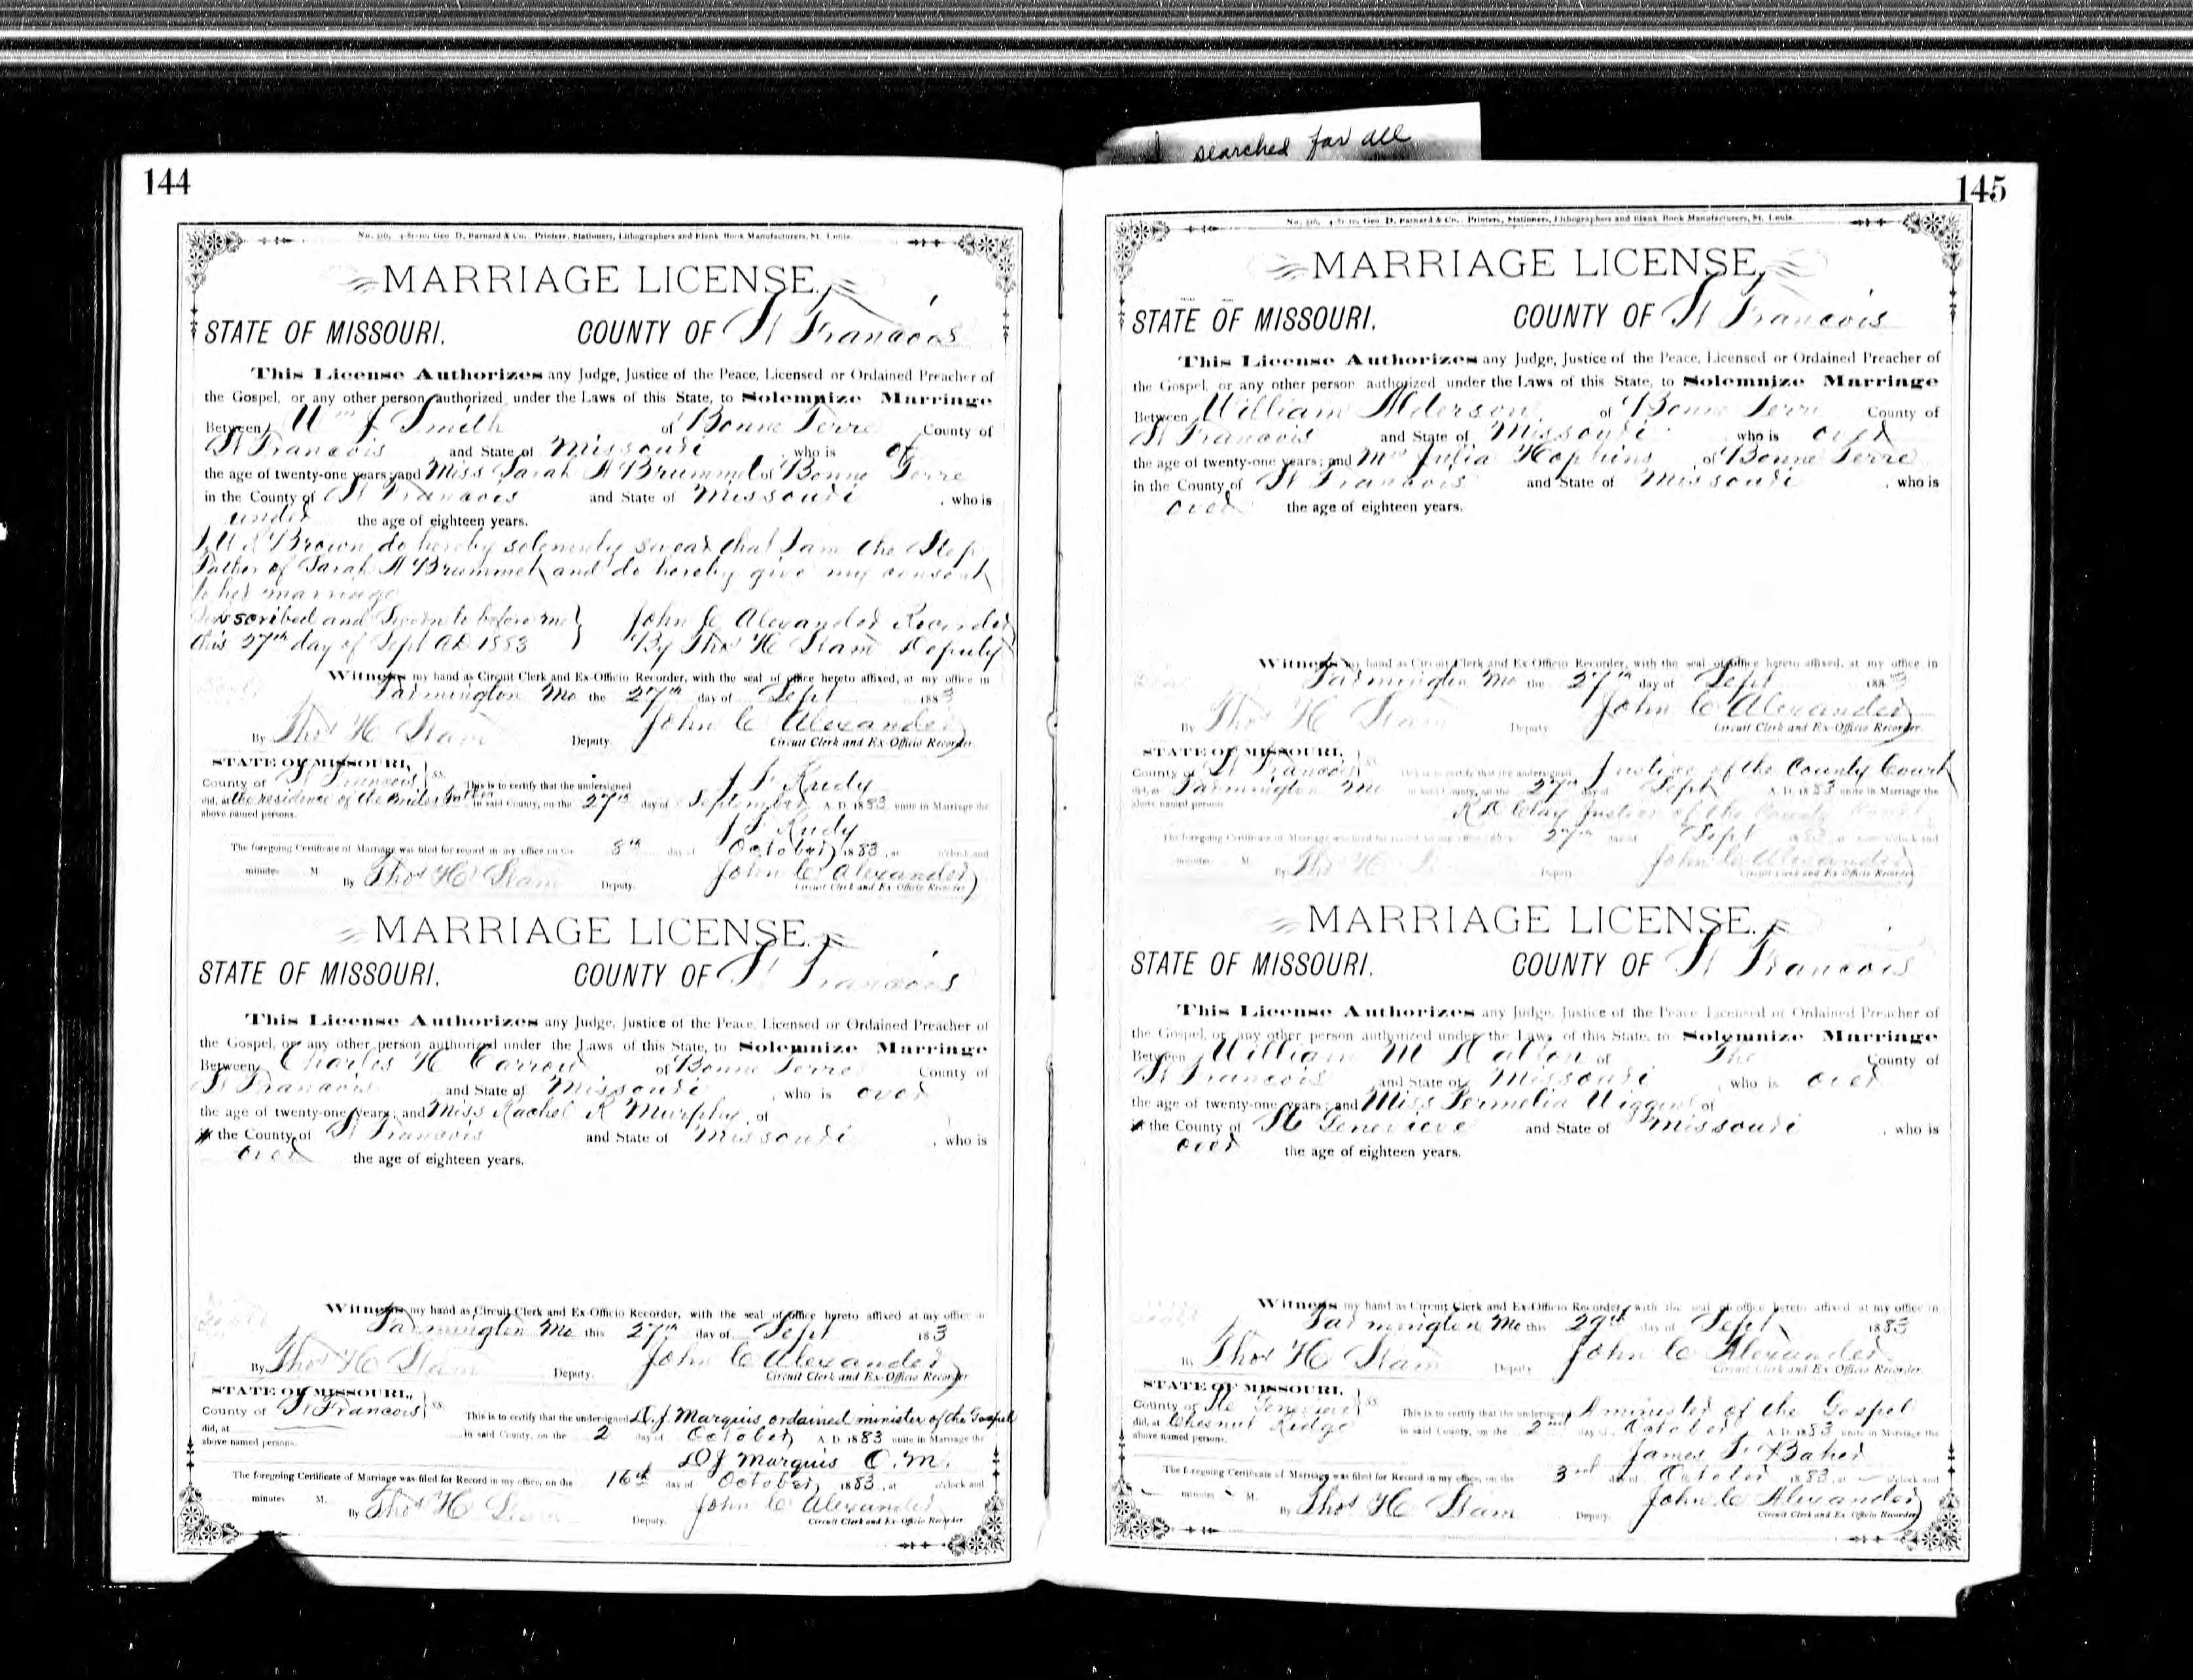 searched for all
144
No. 316, 4-81-10, Geo. D. Barnard & Co., Printers, Stationers, Lithographers and Blank Book Manufacturers, St. Louis.
MARRIAGE LICENSE.
STATE OF MISSOURI. COUNTY OF St Francois
This License Authorizes any Judge, Justice of the Peace, Licensed or Ordained Preacher of
the Gospel, or any other person authorized under the Laws of this State, to Solemnize Marriage
Between Wm J Smith of Bonne Terre County of
St Francois and State of Missouri who is of
the age of twenty-one years; and Miss Sarah A Brummet of Bonne Terre
in the County of St Francois and State of Missouri , who is
under the age of eighteen years.
Brown do hereby solemnly swear that I am the Step
Father of Sarah A Brummet and do hereby give my consent
to her marriage
Subscribed and Sworn to before me } John C Alexander Recorder
this 27th day of Sept AD 1883 } By Thos H Stam Deputy
Witness my hand as Circuit Clerk and Ex-Officio Recorder, with the seal of office hereto affixed, at my office in
Farmington Mo the 27th day of Sept 1883
By Thos H Stam Deputy. John C Alexander
Circuit Clerk and Ex-Officio Recorder.
STATE OF MISSOURI,
County of St Francois } SS. This is to certify that the undersigned J F Rudy
did, at the residence of the brides father in said County, on the 27th day of September A. D. 1883 unite in Marriage the
above named persons. J F Rudy
The foregoing Certificate of Marriage was filed for record in my office on the 8th day of October 1883, at o'clock and
minutes M. By Thos H Stam Deputy. John C Alexander
Circuit Clerk and Ex-Officio Recorder
MARRIAGE LICENSE.
STATE OF MISSOURI. COUNTY OF St Francois
This License Authorizes any Judge, Justice of the Peace, Licensed or Ordained Preacher of
the Gospel, or any other person authorized under the Laws of this State, to Solemnize Marriage
Between Charles H Carrow of Bonne Terre County of
St Francois and State of Missouri , who is over
the age of twenty-one years; and Miss Rachel R Murphy of
in the County of St Francois and State of Missouri , who is
over the age of eighteen years.
Witness my hand as Circuit Clerk and Ex-Officio Recorder, with the seal of office hereto affixed at my office in
Farmington Mo this 27th day of Sept 1883
By Thos H Stam Deputy. John C Alexander
Circuit Clerk and Ex-Officio Recorder
STATE OF MISSOURI,
County of St Francois } SS. This is to certify that the undersigned D. J. Marquis ordained minister of the Gospel
did, at in said County, on the 2 day of October A. D. 1883 unite in Marriage the
above named persons. D J Marquis O. M.
The foregoing Certificate of Marriage was filed for Record in my office, on the 16th day of October 1883, at o'clock and
minutes M. By Thos H Stam Deputy. John C Alexander
Circuit Clerk and Ex-Officio Recorder
145
No. 316, 4-81-10, Geo. D. Barnard & Co., Printers, Stationers, Lithographers and Blank Book Manufacturers, St. Louis.
MARRIAGE LICENSE.
STATE OF MISSOURI. COUNTY OF St Francois
This License Authorizes any Judge, Justice of the Peace, Licensed or Ordained Preacher of
the Gospel, or any other person authorized under the Laws of this State, to Solemnize Marriage
Between William Alderson of Bonne Terre County of
St Francois and State of Missouri who is over
the age of twenty-one years; and Mrs Julia Hopkins of Bonne Terre
in the County of St Francois and State of Missouri , who is
over the age of eighteen years.
Witness my hand as Circuit Clerk and Ex-Officio Recorder, with the seal of office hereto affixed, at my office in
Farmington Mo the 27th day of Sept 1883
By Thos H Stam Deputy John C Alexander
Circuit Clerk and Ex-Officio Recorder.
STATE OF MISSOURI,
County of St Francois } SS. This is to certify that the undersigned Justice of the County Court
did, at Farmington Mo in said County, on the 27th day of Sept A. D. 1883 unite in Marriage the
above named persons R D Clay Justice of the County Court
The foregoing Certificate of Marriage was filed for record in my office on the 27th day of Sept 1883 at o'clock and
minutes M. By Thos H Deputy John C Alexander
Circuit Clerk and Ex-Officio Recorder
MARRIAGE LICENSE.
STATE OF MISSOURI. COUNTY OF St Francois
This License Authorizes any Judge, Justice of the Peace Licensed or Ordained Preacher of
the Gospel, or any other person authorized under the Laws of this State, to Solemnize Marriage
Between William M Halton of The County of
St Francois and State of Missouri , who is over
the age of twenty-one years; and Miss Permelia Wiggins of
in the County of Ste Genevieve and State of Missouri , who is
over the age of eighteen years.
Witness my hand as Circuit Clerk and Ex-Officio Recorder, with the seal of office hereto affixed at my office in
Farmington Mo this 29th day of Sept 1883
By Thos H Stam Deputy John C Alexander
Circuit Clerk and Ex-Officio Recorder.
STATE OF MISSOURI,
County of Ste Genevieve } SS This is to certify that the undersigned A minister of the Gospel
did, at Chesnut Ridge in said County, on the 2nd day of October A. D. 1883 unite in Marriage the
above named persons. James F Baker
The foregoing Certificate of Marriage was filed for Record in my office, on the 3rd day of October 1883, at o'clock and
minutes M. By Thos H Stam Deputy. John C Alexander
Circuit Clerk and Ex-Officio Recorder